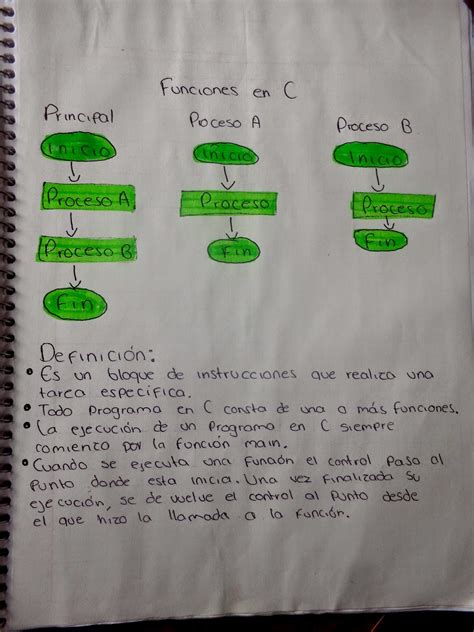 Funciones en C
Principal
Poceso A
Proceso B
Inicio
Inicio
Inicio
Proceso A
Proceso
Proceso
Proceso B
Fin
Fin
Fin
Definición:
• Es un bloque de instrucciones que realiza una
tarea especifica.
• Todo programa en C consta de una o más funciones.
• La ejecución de un programa en C siempre
comienza por la función main.
• Cuando se ejecuta una función el control pasa al
punto donde esta inicia. Una vez finalizada su
ejecución, se de vuelve el control al punto desde
el que hizo la llamada a la función.